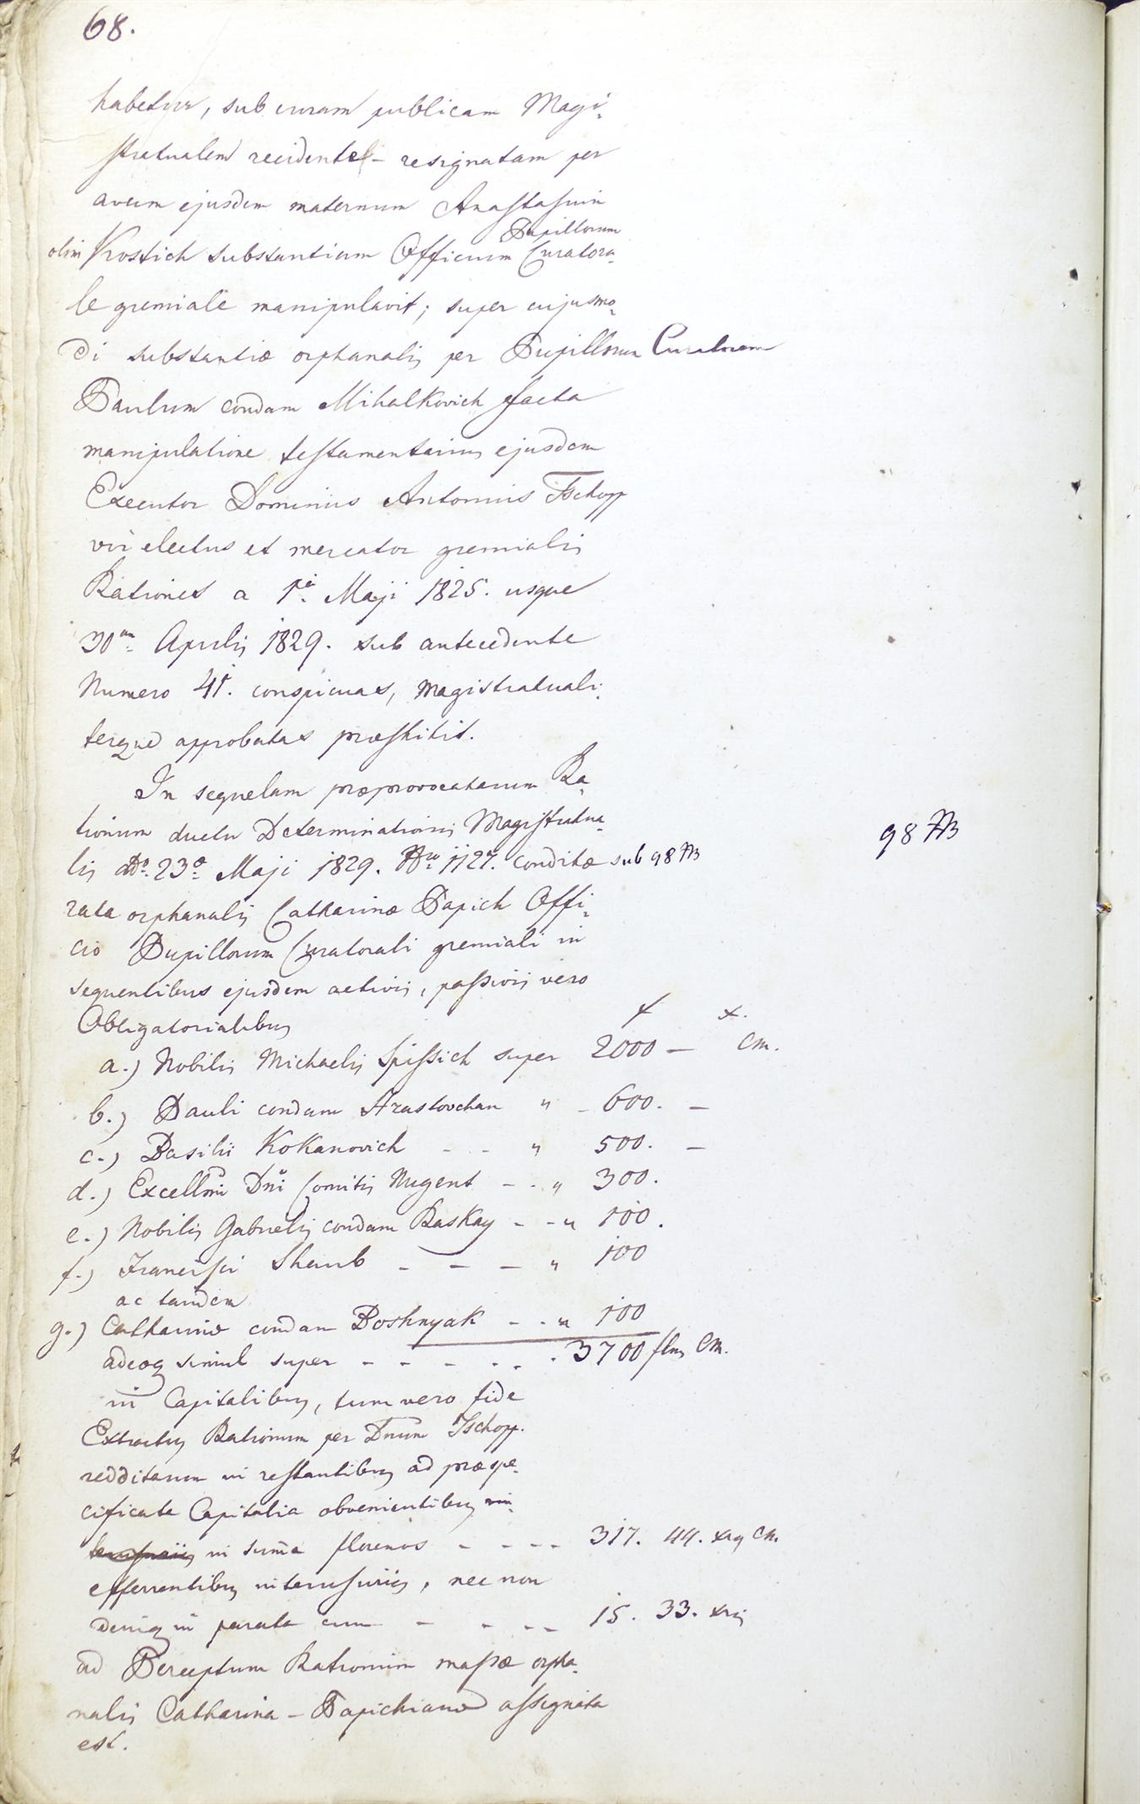 68.
habetur, sub curam publicam Magi-
stratualem recidentes - resignatam per
avum ejusdem maternum Anastasium
Pupillorum
olim Kostich substantiam Officium Curatora-
le gremiale manipulavit; super cujusmo-
di substantiæ orphanalis per Pupillorum Curatorem
Paulum condam Mihalkovich facta
manipulatione testamentarius ejusdem
Executor Dominus Antonius Tschopp
vir electus et mercator gremialis
Rationes a 1ª Maji 1825. usque
30am Aprilis 1829. sub antecedente
Numero 41. conspicuas, magistratuali-
terque approbatas præstitit.
In sequelam præprovocatarum Ra-
tionum ductu Determinationis Magistratua-
lis Dº. 23ª Maji 1829. Nro 1127. conditæ sub 98
98
rata orphanalis Catharinæ Papich Offi-
cio Pupillorum Curatorali gremiali in
sequentibus ejusdem activis, passivis vero
Obligatorialibus
f x.
a.) Nobilis Michaelis Spissich super 2000 — Cm.
b.) Pauli condam Hrastovchan " - 600. —
c.) Basilii Kokanovich - - " 500. —
d.) Excellmi Dni Comitis Nugent - - " 300.
e.) Nobilis Gabrielis condam Raskay - - " 100.
f.) Francisci Shaub - - - " 100
ac tandem
g.) Catharinæ condam Boshnyak - - " 100
adeoq simul super - - - - - - 3700 flnis Cm.
in Capitalibus, tum vero fide
Extractus Rationum per Dnum Tschopp.
redditarum in restantibus ad præspe-
cificata Capitalia obvenientibus in-
in summa florenos - - - - 317. 44. xrq Cm.
efferentibus interusuriis, nec non
deniq in parata cum - - - - 15. 33. xris
ad Perceptum Rationum massæ orpha-
nalis Catharina - Papichianæ assignata
est.